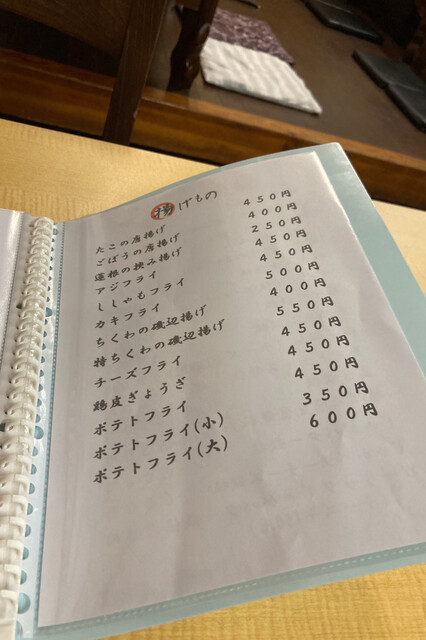 揚げもの
たこの唐揚げ 450円
ごぼうの唐揚げ 400円
蓮根の挟み揚げ 250円
アジフライ 450円
ししゃもフライ 450円
カキフライ 500円
ちくわの磯辺揚げ 400円
特ちくわの磯辺揚げ 550円
チーズフライ 450円
鶏皮ぎょうざ 450円
ポテトフライ 450円
ポテトフライ(小) 350円
ポテトフライ(大) 600円